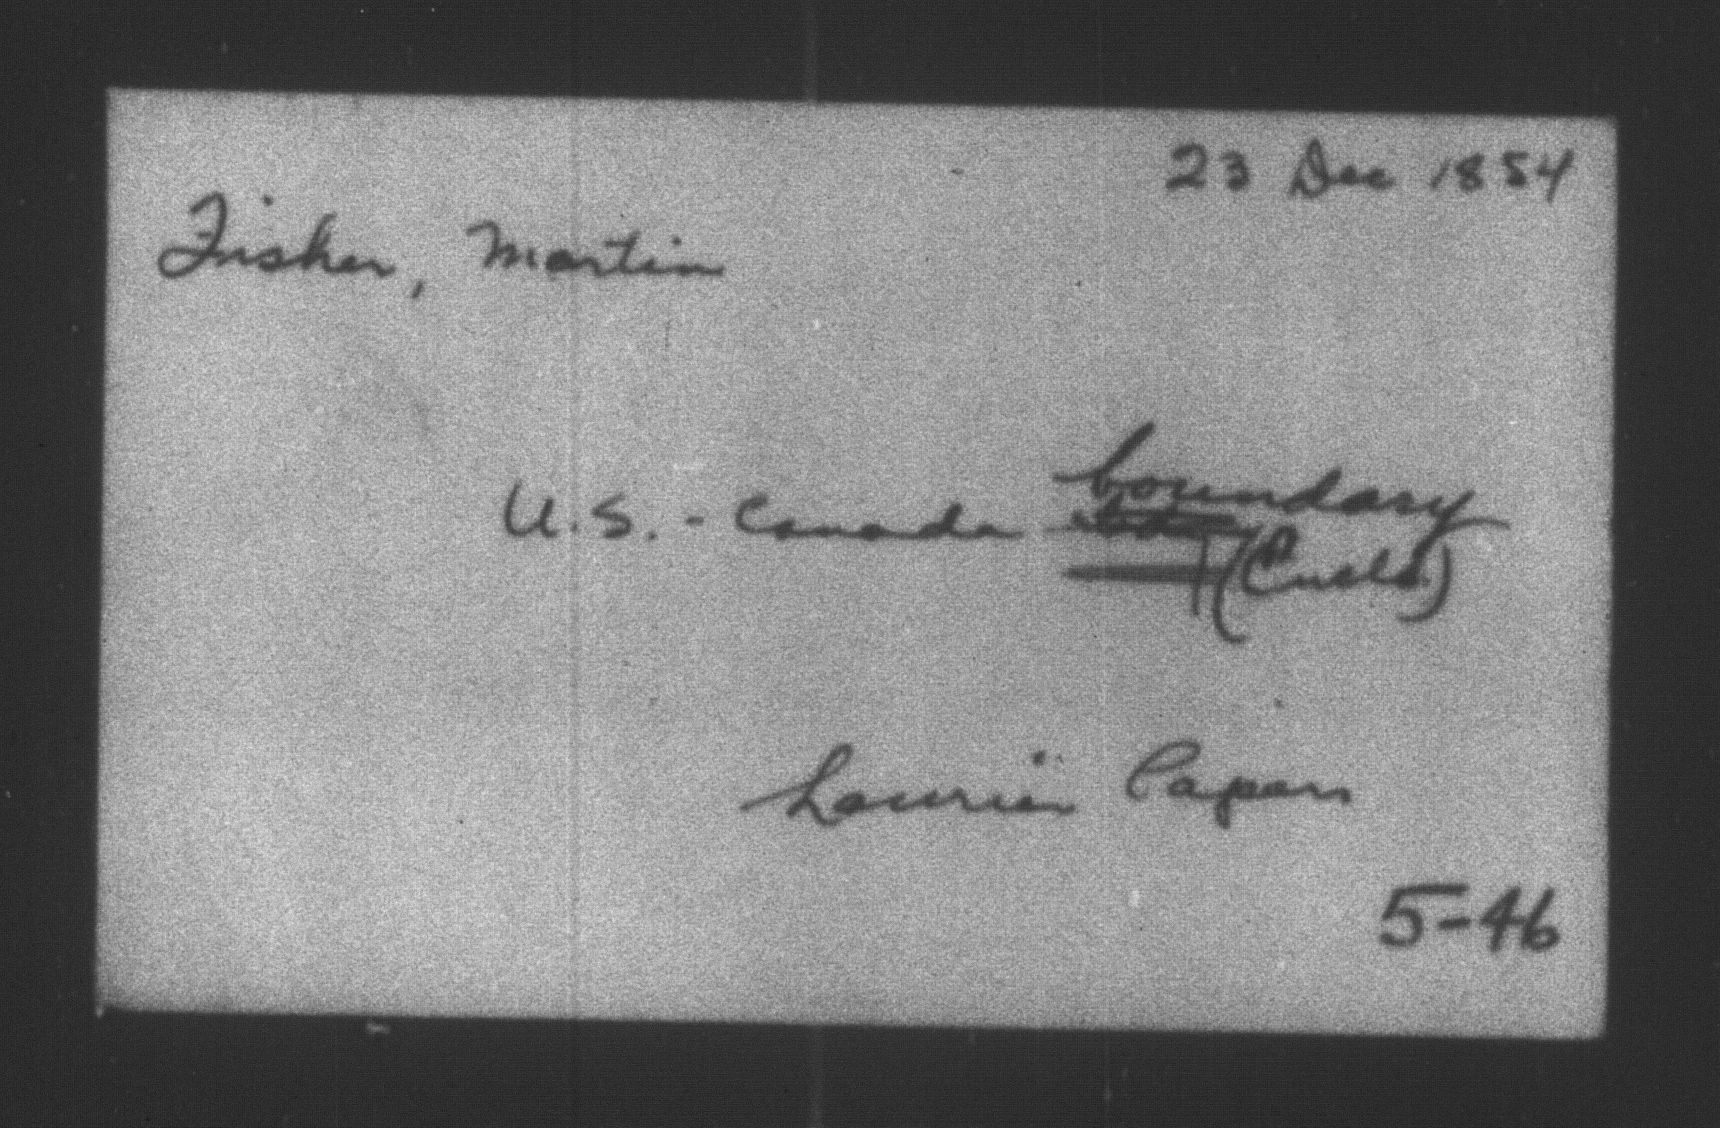 23 Dec 1854
Fisher, Martin
U.S. - Canada boundary
Laurier Papers
5-46